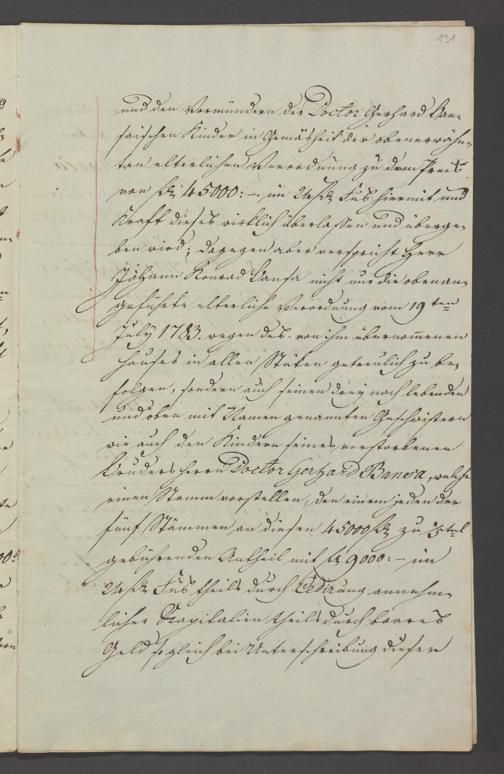 131
und den Vormündern der Doctor Gerhard Ban-
saischen Kinder in Gemäsheit der obenerwähn-
ten elterlichen Verordnung zu dem Preis
von fl. 45000:— im 24 fl. Fus hiermit und
Kraft dieses wirklich überlassen und überge-
ben wird; dagegen aber verspricht Herr
Johann Konrad Bansa nicht nur die obenan-
geführte elterliche Verordnung vom 19ten
July 1783. wegen des von ihm übernommenen
Hauses in allen Stüken getreulich zu be-
folgen, sondern auch seinen drey noch lebenden
und oben mit Namen genannten Geschwistern
wie auch den Kindern seines verstorbenen
Bruders Herrn Doctor Gerhard Bansa, welche
einen Stamm vorstellen, den einem jeden der
fünf Stämmen an diesen 45000 fl. zu 1/5tel
gebührenden Antheil mit fl. 9000:— im
24 fl. Fus theils durch Cedirung annehm-
licher Kapitalien theils durch baares
Geld sogleich bei Unterschreibung dieses